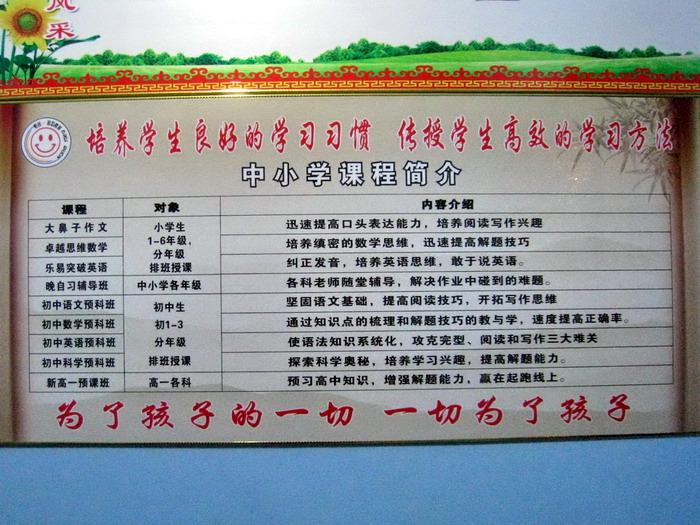 风采
培养学生良好的学习习惯 传授学生高效的学习方法
中小学课程简介
课程 对象 内容介绍
大鼻子作文 小学生 迅速提高口头表达能力，培养阅读写作兴趣
卓越思维数学 1-6年级， 培养缜密的数学思维，迅速提高解题技巧
分年级
乐易突破英语 排班授课 纠正发音，培养英语思维，敢于说英语。
晚自习辅导班 中小学各年级 各科老师随堂辅导，解决作业中碰到的难题。
初中语文预科班 初中生 坚固语文基础，提高阅读技巧，开拓写作思维
初中数学预科班 初1-3 通过知识点的梳理和解题技巧的教与学，速度提高正确率。
初中英语预科班 分年级 使语法知识系统化，攻克完型、阅读和写作三大难关
初中科学预科班 排班授课 探索科学奥秘，培养学习兴趣，提高解题能力。
新高一预课班 高一各科 预习高中知识，增强解题能力，赢在起跑线上。
为了孩子的一切 一切为了孩子